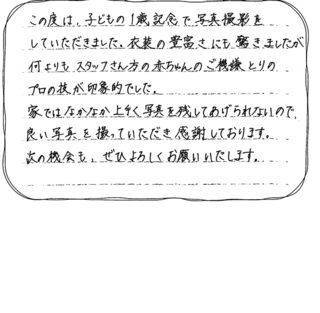 この度は、子どもの1歳記念で写真撮影を
していただきました。衣装の豊富さにも驚きましたが
何よりもスタッフさん方の赤ちゃんのご機嫌とりの
プロの技が印象的でした。
家ではなかなか上手く写真を残してあげられないので、
良い写真を撮っていただき感謝しております。
次の機会も、ぜひよろしくお願いいたします。